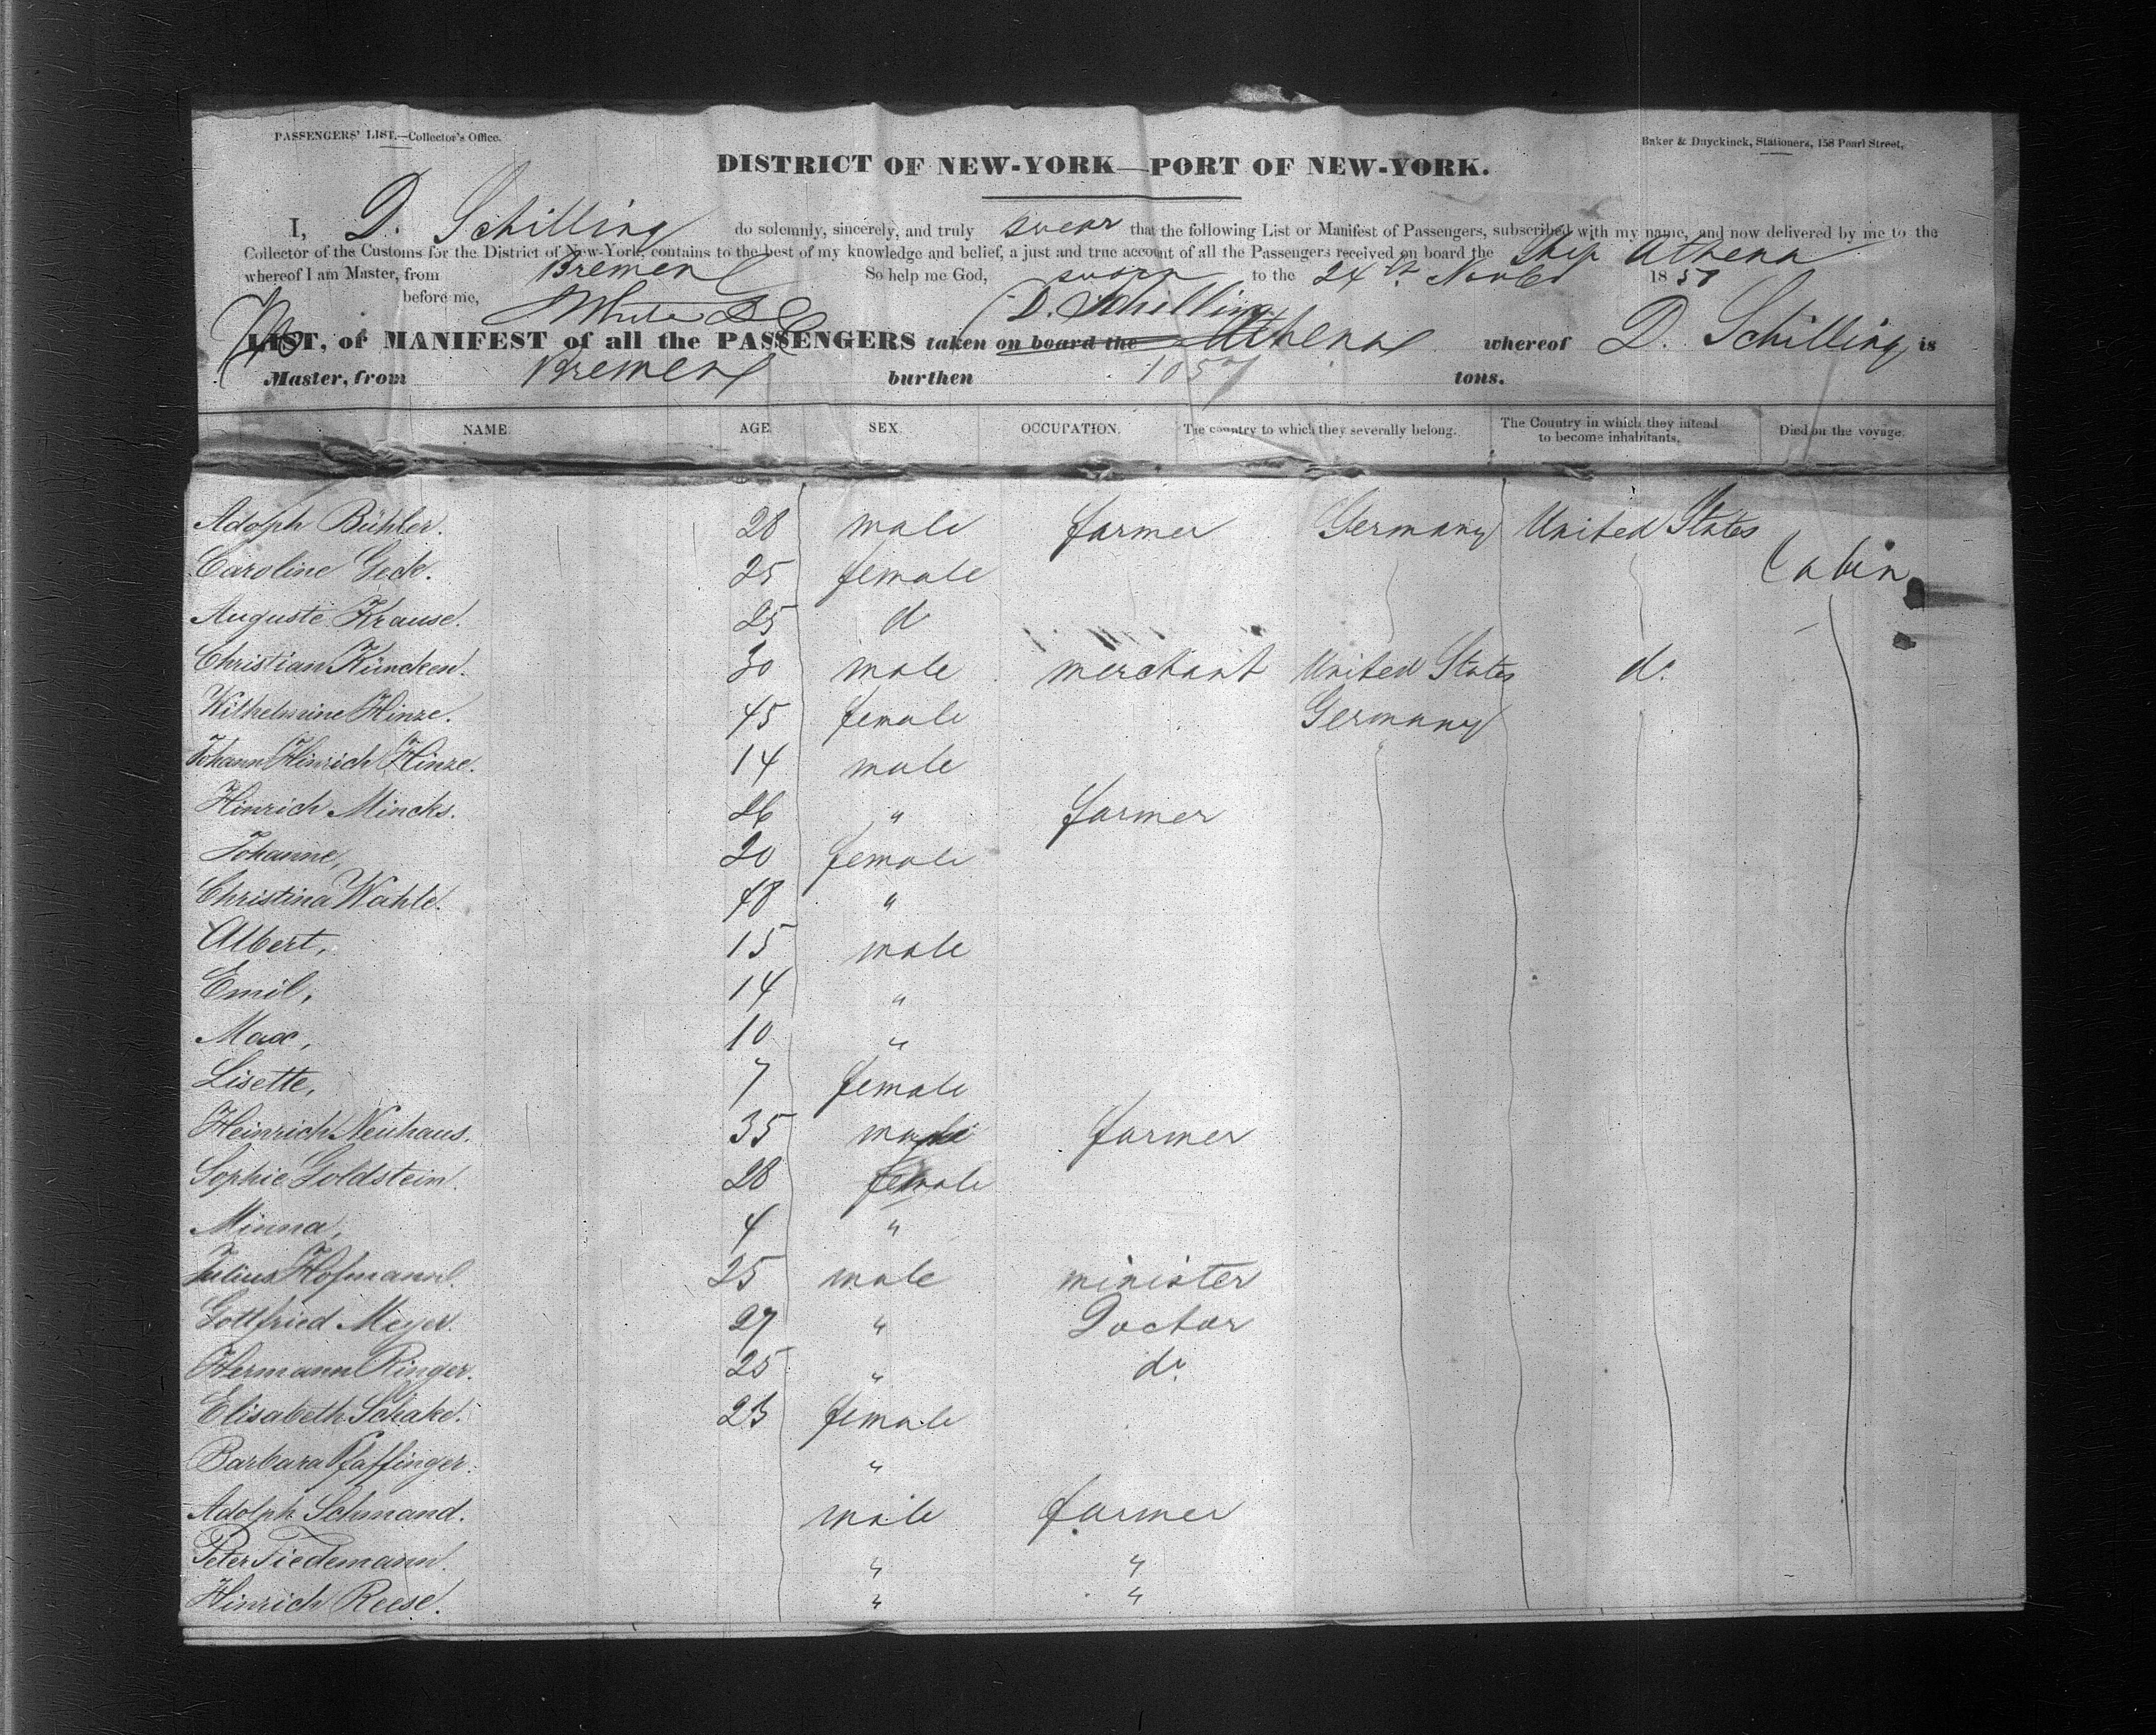 PASSENGERS' LIST.—Collector's Office.
Baker & Duyckinck, Stationers, 158 Pearl Street,
DISTRICT OF NEW-YORK—PORT OF NEW-YORK.
I, D. Schilling do solemnly, sincerely, and truly swear that the following List or Manifest of Passengers, subscribed with my name, and now delivered by me to the
Collector of the Customs for the District of New-York, contains to the best of my knowledge and belief, a just and true account of all the Passengers received on board the Ship Athena
whereof I am Master, from Bremen So help me God, sworn to the 24th Novbr 185
before me, D. Schilling
LIST, or MANIFEST of all the PASSENGERS taken on board the Athena whereof D. Schilling is
Master, from Bremen burthen 1057 tons.
NAME. AGE SEX. OCCUPATION. The country to which they severally belong. The Country in which they intend to become inhabitants. Died on the voyage.
Adolph Bühler. 28 male farmer Germany United States
Caroline Geck. 25 female Cabin
Auguste Krause. 25 d
Christian Küncken. 30 male merchant United States do
Wilhelmine Hinze. 45 female Germany
Johann Hinrich Hinze. 14 male
Hinrich Mincks. 26 " farmer
Johanne, 20 female
Christina Wahle. 48 "
Albert, 15 male
Emil, 14 "
Max, 10 "
Lisette, 7 female
Heinrich Neuhaus. 35 male farmer
Sophie Goldstein. 28 female
Minna, 4 "
Julius Hofmann. 25 male minister
Gottfried Meyer. 27 " Doctor
Hermann Ringer. 25 " do
Elisabeth Schake. 23 female
Barbara Pfaffinger. "
Adolph Schmand. male farmer
Peter Tiedemann. " "
Hinrich Reese. " "